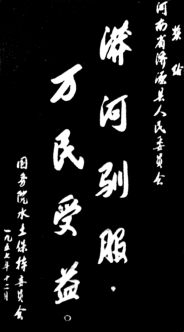 奖给
河南省济源县人民委员会
漭河驯服．
万民受益。
国务院水土保持委员会
一九五七年十二月